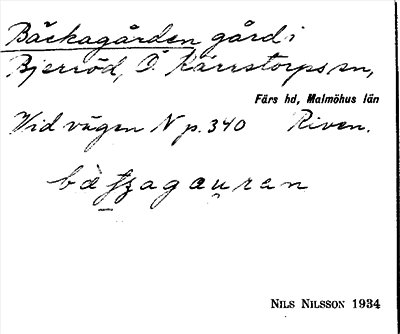 Bäckagården gård i
Bjerröd, Ö. Kärrstorps sn,
Färs hd, Malmöhus län
Vid vägen N p. 340 Riven.
NILS NILSSON 1934